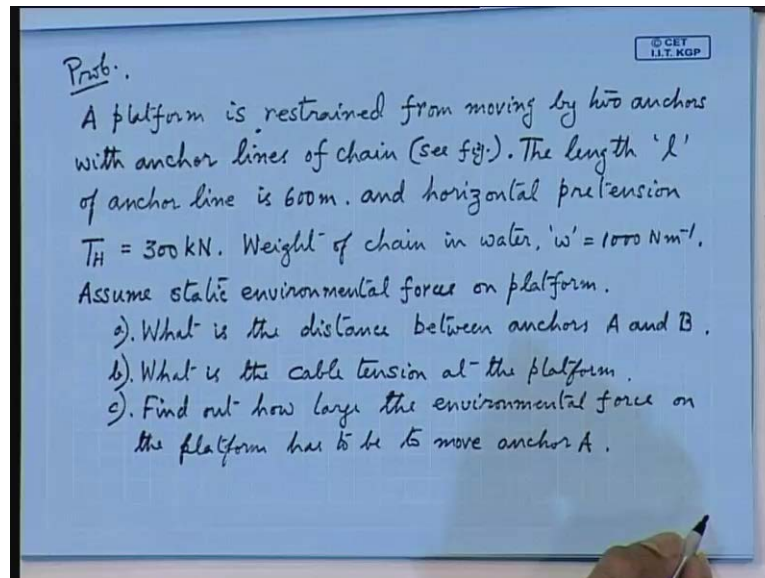 © CET
I.I.T. KGP
Prob.
A platform is restrained from moving by two anchors
with anchor lines of chain (see fig.). The length 'l'
of anchor line is 600m. and horizontal pretension
T_H = 300 kN. Weight of chain in water, 'w' = 1000 Nm⁻¹.
Assume static environmental forces on platform.
a). What is the distance between anchors A and B.
b). What is the cable tension at the platform.
c). Find out how large the environmental force on
the platform has to be to move anchor A.